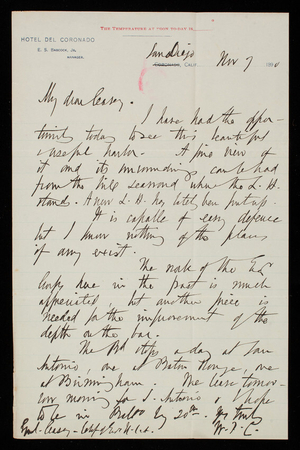 THE TEMPERATURE AT NOON TO-DAY IS
HOTEL DEL CORONADO
E. S. BABCOCK, JR.
MANAGER.
San Diego
CORONADO, CALIF. Nov 7 1890
My dear Casey.
I have had the oppor-
tunity today to see this beautiful
& useful harbor. A fine view of
it and its surroundings can be had
from the hill seaward where the L. H.
stands. A new L. H. has lately been put up.
It is capable of easy defence
but I know nothing of the plans
if any exist.
The work of the Eng
Corps done in the past is much
appreciated, but another piece is
needed for the improvement of the
depth on the bar.
The Bd stops a day at San
Antonio, one at Baton Rouge, one
at Birmingham. We leave tomor-
row morning for S. Antonio & hope
to be in by 20th. Yrs truly
Genl. Casey - Chf of Engrs U.S.A. W. P. C.